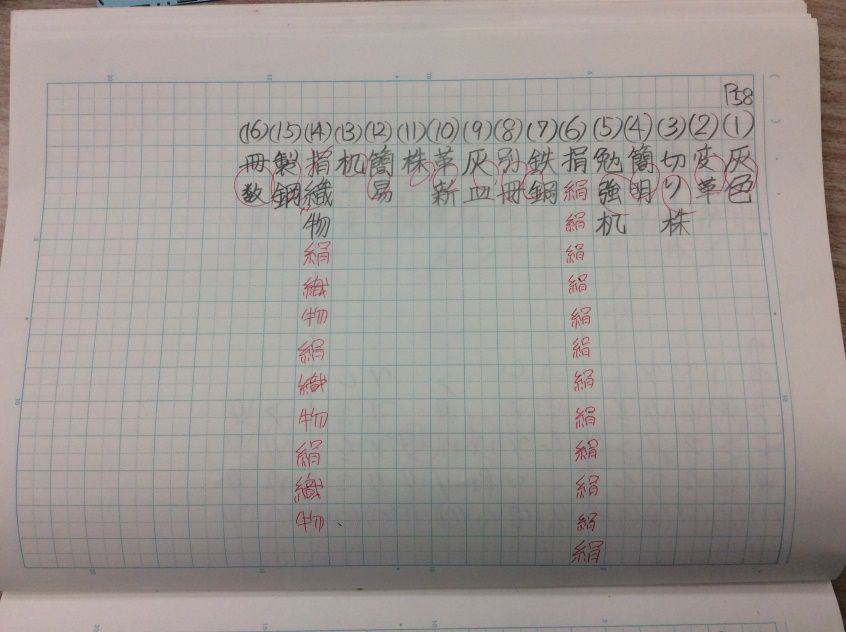 P58
(1)灰色
(2)変革
(3)切り株
(4)簡明
(5)勉強机
(6)捐絹絹絹絹絹絹絹絹絹絹絹絹
(7)鉄鋼
(8)別冊
(9)灰皿
(10)革新
(11)株
(12)簡易
(13)机
(14)捐織物絹織物絹織物絹織物
(15)製鋼
(16)冊数